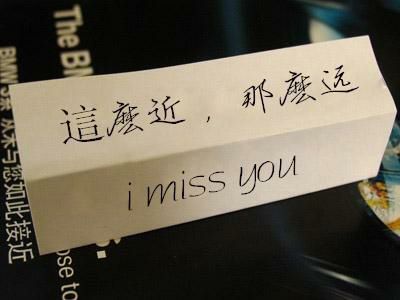 這麼近，那麼远
i miss you
The BM
BMW 3系 从未与您如此接近
s.
ose to